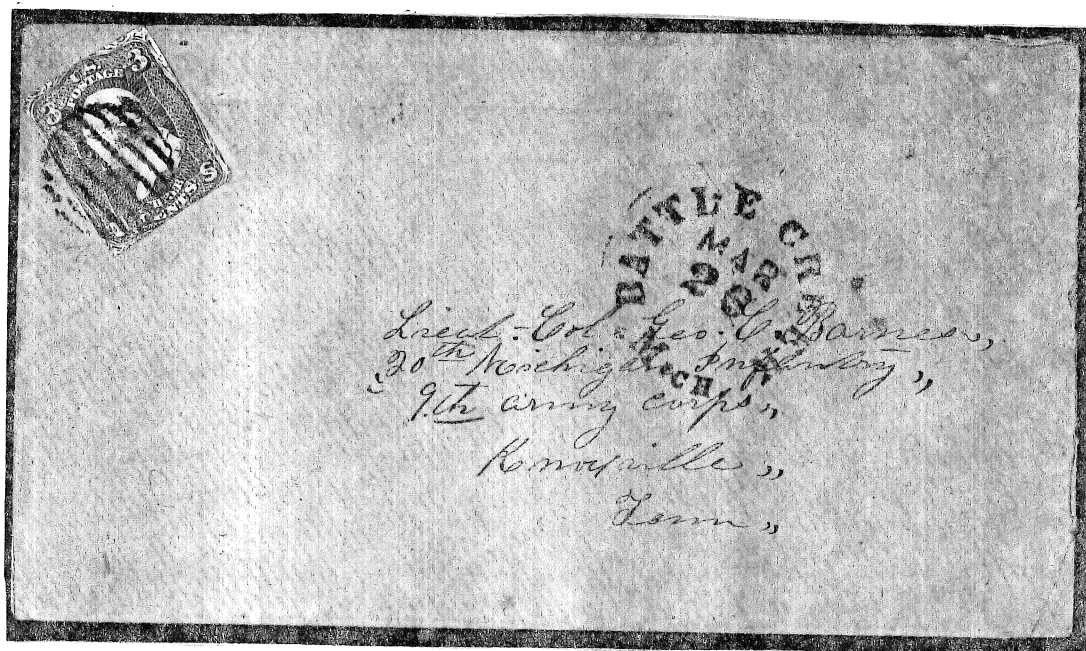 3 U.S. 3
POSTAGE
THREE
CENTS
BATTLE CREEK
MAR
MICH.
Lieut-Col. Geo. C. Barnes,,
20th Michigan Infantry,,
9th army corps,,
Knoxville,,
Tenn,,